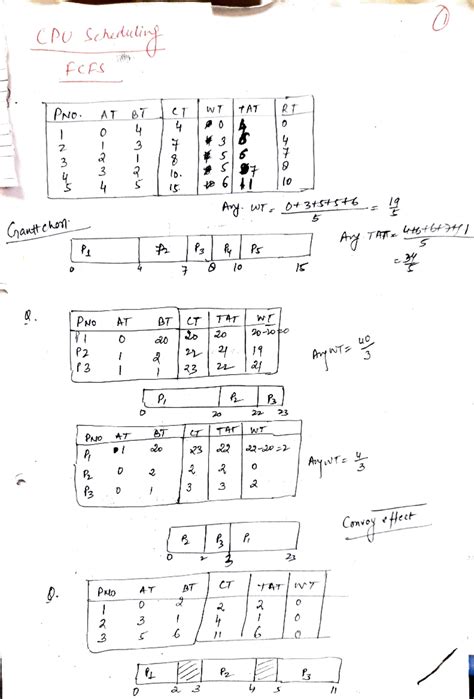 1
CPU Scheduling
FCFS
PNO. AT BT CT WT TAT RT
1 0 4 4 0 4 0
2 1 3 7 3 6 4
3 2 1 8 5 6 7
4 3 2 10. 5 7 8
5 4 5 15. 6 11 10
Avg. WT = 0+3+5+5+6 / 5 = 19/5
Avg TAT = 4+6+6+7+11 / 5
= 34/5
Gantt chart
P1 P2 P3 P4 P5
0 4 7 8 10 15
Q.
PNO AT BT CT TAT WT
P1 0 20 20 20 20-20=0
P2 1 2 22 21 19
P3 1 1 23 22 21
Avg WT = 40/3
P1 P2 P3
0 20 22 23
PNO AT BT CT TAT WT
P1 1 20 23 22 22-20=2
P2 0 2 2 2 0
P3 0 1 3 3 2
Avg WT = 4/3
Convoy effect
P2 P3 P1
0 2 3 23
Q.
PNO AT BT CT TAT WT
1 0 2 2 2 0
2 3 1 4 1 0
3 5 6 11 6 0
P1 P2 P3
0 2 3 4 5 11